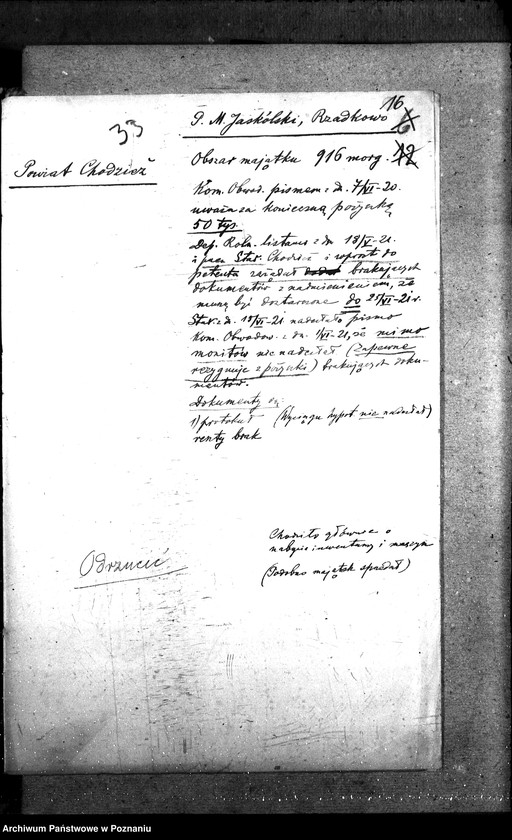 16
33
P. M. Jaskólski, Rzadkowo
Powiat Chodzież
Obszar majątku 916 morg. 12
Kom. Obwod. pismem z dn. 7/VI-20.
uważa za konieczną pożyczkę
50 tys.
Dep. Roln. listami z dn 18/V-21.
i przez Star. Chodzież i wprost do
petenta zażądał brakujących
dokumentów z nadmienieniem, że
muszą być dostarczone do 25/VI-21 r.
Star. z dn. 18/VI-21 nadesłało pismo
Kom. Obwodow. z dn. 1/VI-21, że mimo
monitów nie nadesłał (zapewne
rezygnuje z pożyczki) brakujących doku-
mentów.
Dokumenty są:
1) protokół (Wyciągu hypot nie nadesłał)
renty brak
Chodziło głównie o
nabycie inwentarzy i maszyn
Odrzucić
(Podobno majątek sprzedał)
Archiwum Państwowe w Poznaniu